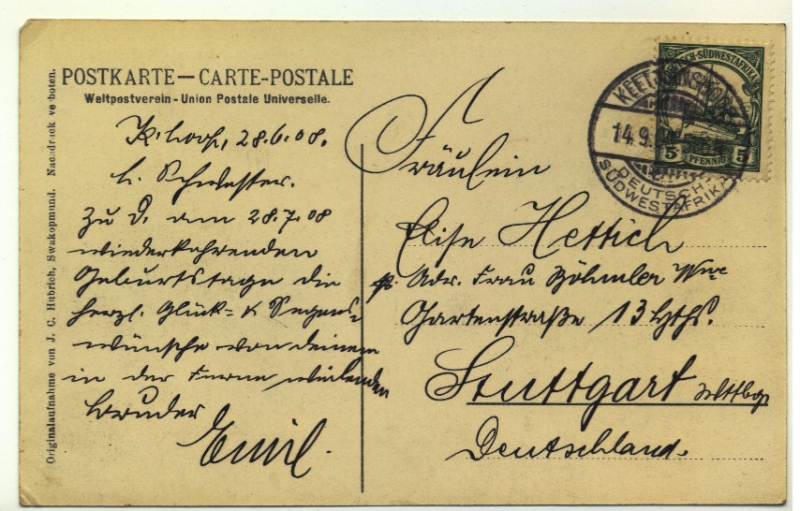 POSTKARTE — CARTE-POSTALE
Weltpostverein - Union Postale Universelle.
K.hoop, 28.6.08.
l. Schwester.
Zu D. am 28.7.08
wiederkehrenden
Geburtstage die
herzl. Glück- & Segens-
wünsche von deinem
in der Ferne weilenden
Bruder
Emil.
Fräulein
Elise Hettich
Adr. Frau Böhmler Wwe
Gartenstraße 13 Hths.
Stuttgart
Deutschland.
DEUTSCH-SÜDWESTAFRIKA
5 PFENNIG 5
14.9.
DEUTSCH-
SÜDWESTAFRIKA
Originalaufnahme von J. C. Hubrich, Swakopmund. Nachdruck verboten.